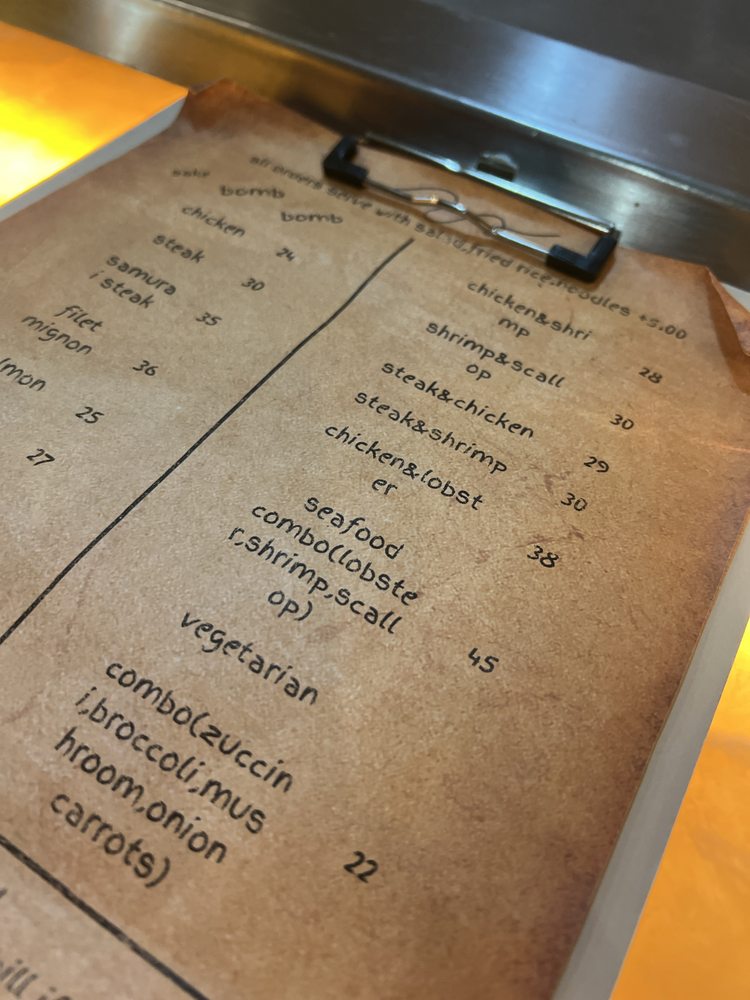 all orders serve with salad,fried rice,noodles +5.00
sake bomb
bomb
chicken 24
steak 30
samura
i steak 35
filet
mignon 36
25
27
chicken&shri
mp 28
shrimp&scall
op 30
steak&chicken 29
steak&shrimp 30
chicken&lobst
er 38
seafood
combo(lobste
r,shrimp,scall
op) 45
vegetarian
combo(zuccin
i,broccoli,mus
hroom,onion
carrots) 22